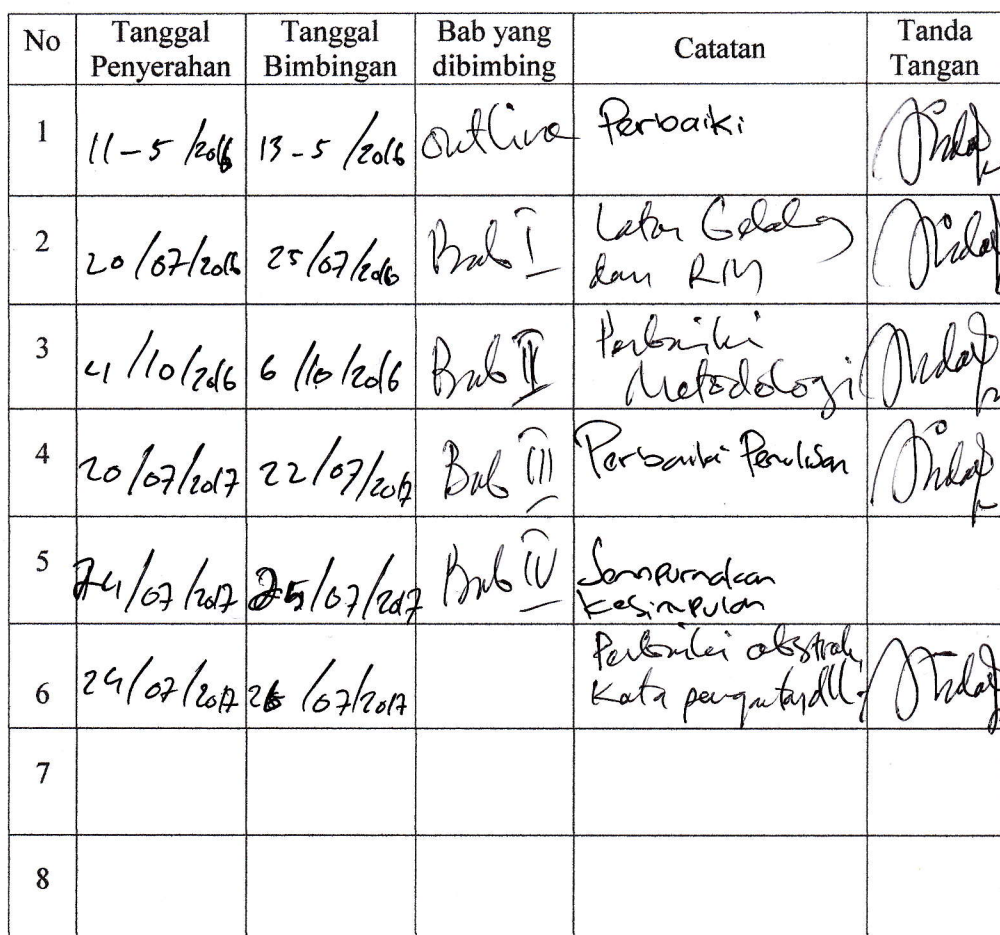 No Tanggal Penyerahan Tanggal Bimbingan Bab yang dibimbing Catatan Tanda Tangan
1 11-5/2016 13-5/2016 outline Perbaiki
2 20/07/2016 25/07/2016 Bab I Latar Belakang
dan RM
3 4/10/2016 6/10/2016 Bab II Perbaiki
Metodologi
4 20/07/2017 22/07/2017 Bab III Perbaiki Penulisan
5 24/07/2017 25/07/2017 Bab IV Sempurnakan
Kesimpulan
6 24/07/2017 26/07/2017 Perbaiki abstrak,
Kata pengantar dll
7
8